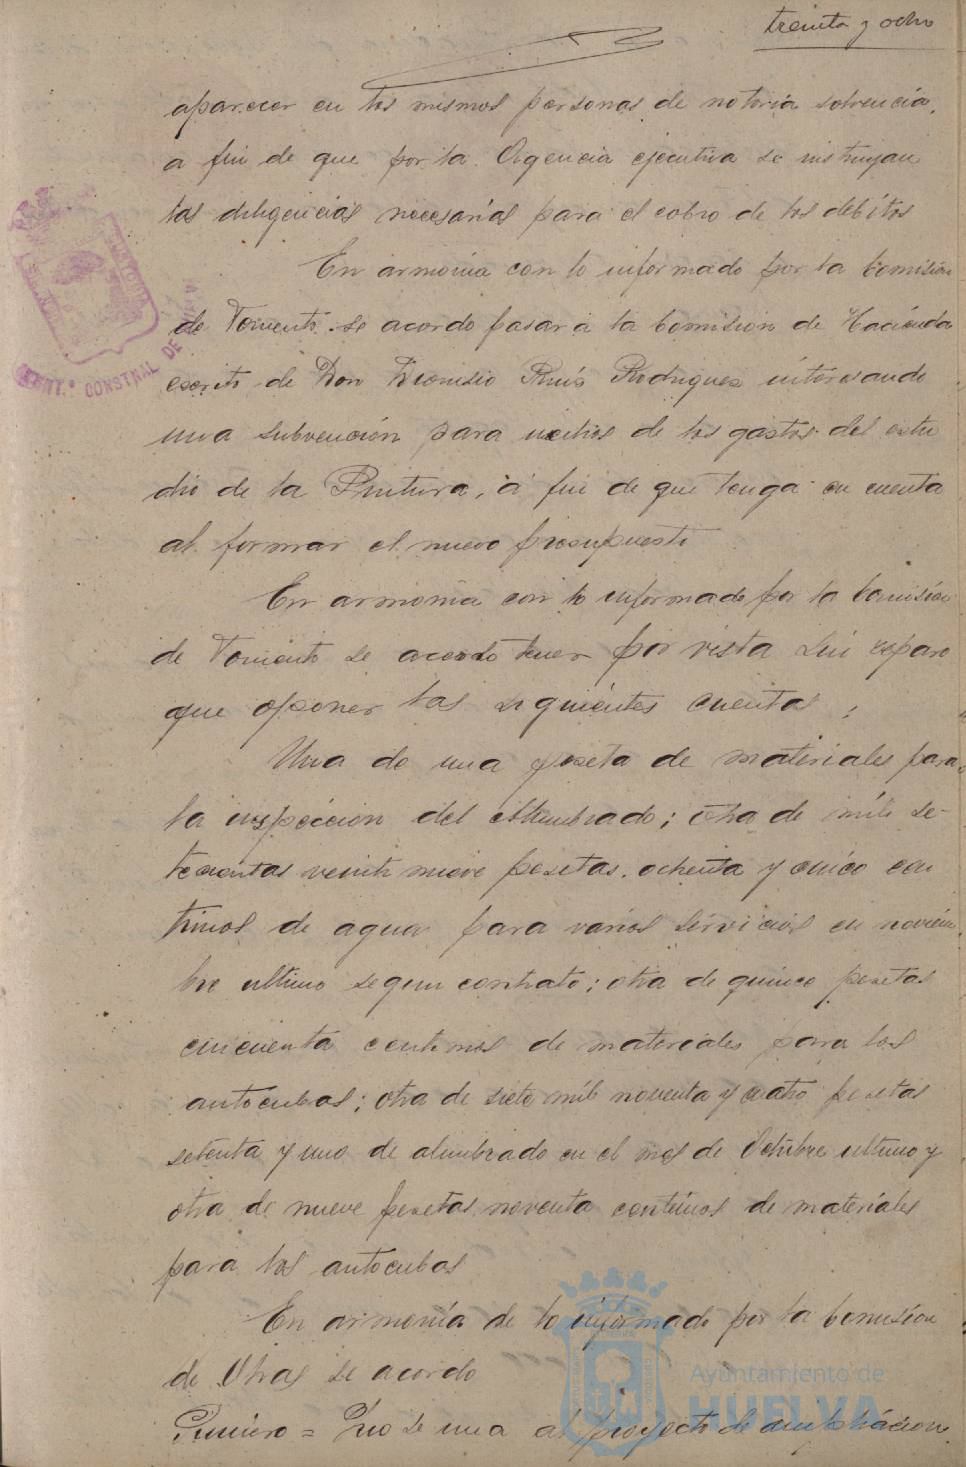 treinta y ocho
aparecer en los mismos personas de notoria solvencia,
a fin de que por la Agencia ejecutiva se instruyan
las diligencias necesarias para el cobro de los debitos
En armonia con lo informado por la Comisión
de Fomento se acordo pasar á la Comision de Hacienda
escrito de Don Dionisio Ruis Rodriguez interesando
una subvención para de los gastos del estu
dio de la Pintura, á fin de que tenga en cuenta
al formar el nuevo presupuesto
En armonia con lo informado por la Comisión
de Fomento se acordo tener por vista sin reparo
que oponer las siguientes cuentas;
Una de una peseta de materiales para
la inspeccion del Alumbrado; otra de mil se-
tecientas veinte nueve pesetas ochenta y cinco cen
timos de agua para varios servicios en noviem
bre ultimo segun contrato; otra de quince pesetas
cincuenta centimos de materiales para los
autocubas; otra de siete mil noventa y cuatro pesetas
setenta y uno de alumbrado en el mes de Octubre ultimo y
otra de nueve pesetas noventa centimos de materiales
para los autocubas
En armonía de lo informado por la Comisión
de Obras se acordo
Primero = Que se una al proyecto de ampliación
CONSTNAL DE
Ayuntamiento de
HUELVA